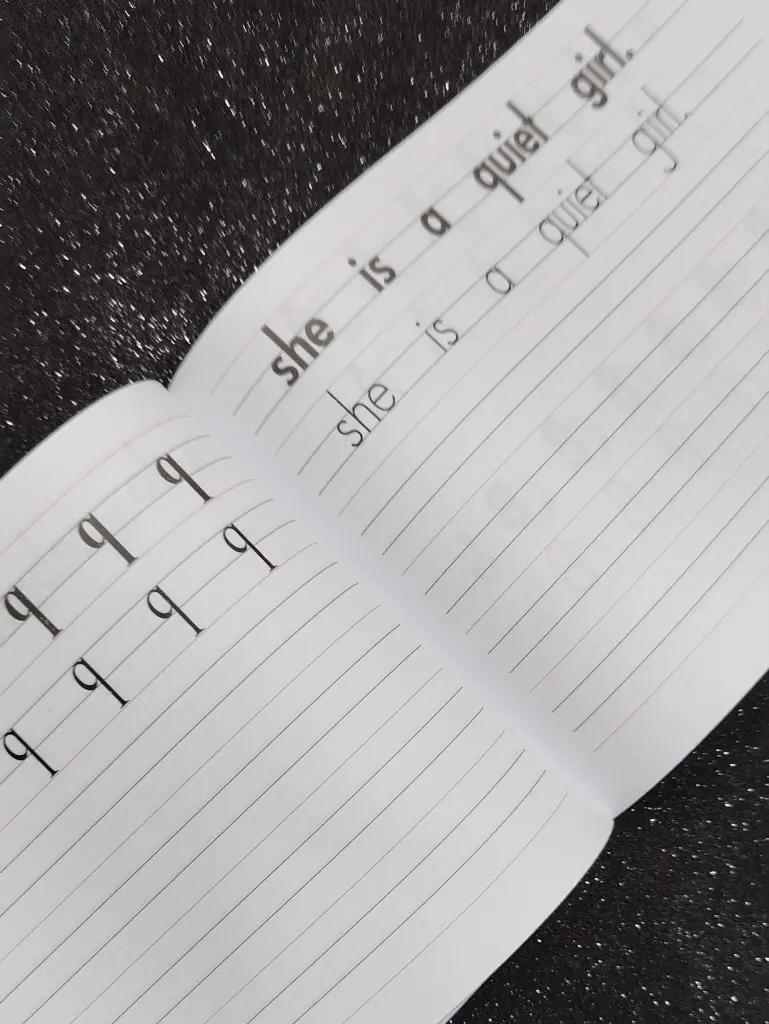 q q q
q q q q
she is a quiet girl.
she is a quiet girl.